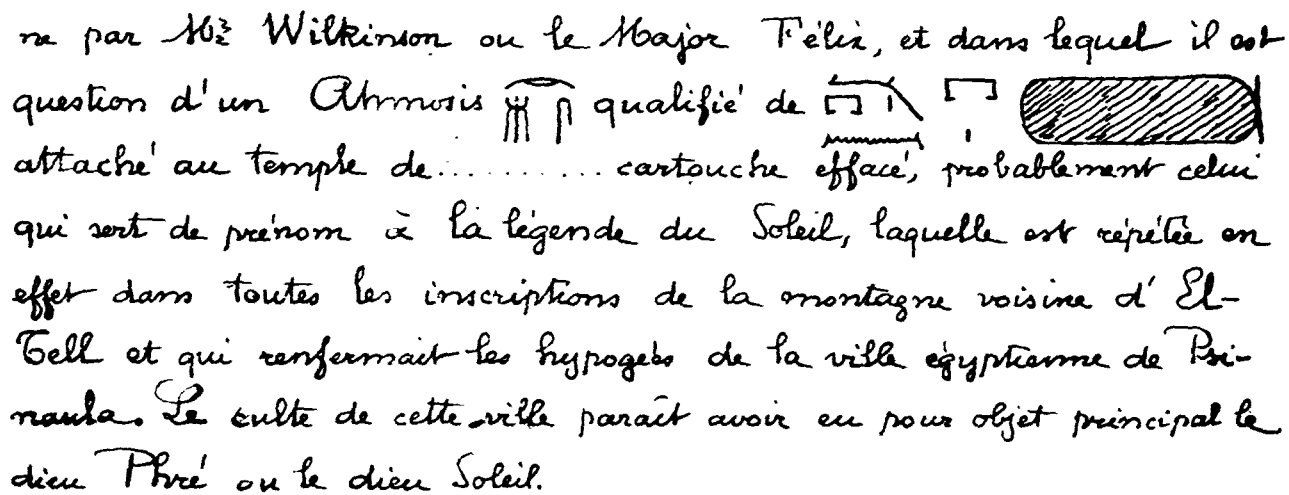 ne par Mr Wilkinson ou le Major Félix, et dans lequel il est
question d'un Ahmosis qualifié de
attaché au temple de .......... cartouche effacé, probablement celui
qui sert de prénom à la légende du Soleil, laquelle est répétée en
effet dans toutes les inscriptions de la montagne voisine d'El-
Tell et qui renfermait les hypogées de la ville égyptienne de Psi-
naula. Le culte de cette ville paraît avoir eu pour objet principal le
dieu Phré ou le dieu Soleil.